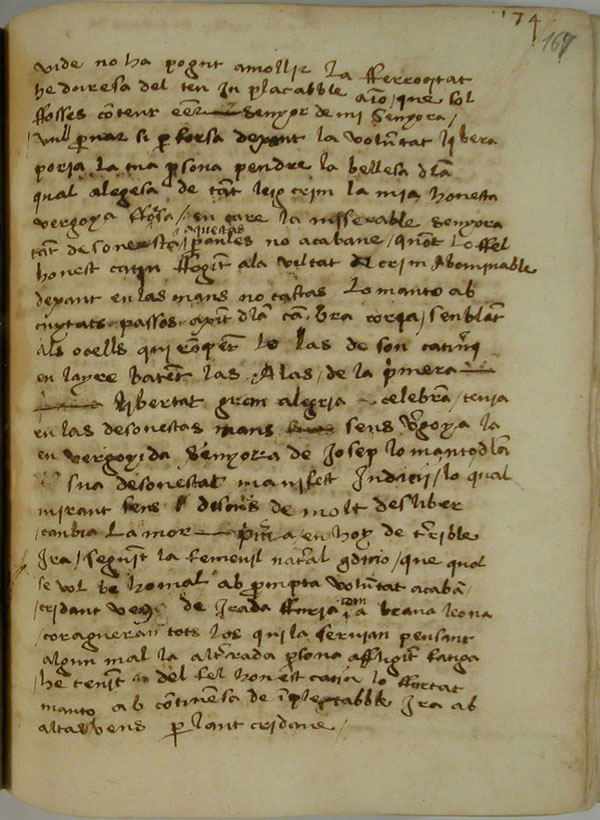 174
167
vide no ha pogut amollir la fferrogitat
he duresa del teu in placabble aĩo, que sol
ffosses cõtent eẽr senyor de mi senyora /
vull ꝑvar si ꝑ forsa dexant la volũtat libera
poria la tua ꝑsona pendre la bellesa dla
qual alegesa de tãt leig crim la mia honesta
vergoya ffõsa / en care la miserable senyora
tãt desonesta aquestas paules no acabane / quãt lo ffel
honest catiu ffogint a la viltat del crim abominable
dexant en las mans no castas lo manto ab
cuytats passos axit dla cã bra corria / senblãt
als ocells qui rõpẽt lo las de son catiu
en layre batẽt las alas / de la primera
libertat gran alegria celebrã / tenia
en las desonestas mans sens vgoya la
en vergoyida senyora de Josep lo manto dla
sua desonestat manifest indicii / lo qual
mirant sens discurs de molt desliber
cambia lamor en hoy de terrible
ira / seguit la femenil natral cõdicio / que qual
se vol be ho mal ab prompta volũtat acabã
cridant veus de irada ffuria com a brava leona
coragueran tots los qui la servian pensant
algun mal la altrada ꝑsona affligit fatiga
he tenĩt del fel honest catiu lo ffurtat
manto ab cõtinensa de ĩplacabble ira ab
altas vens ꝑlant cridane /